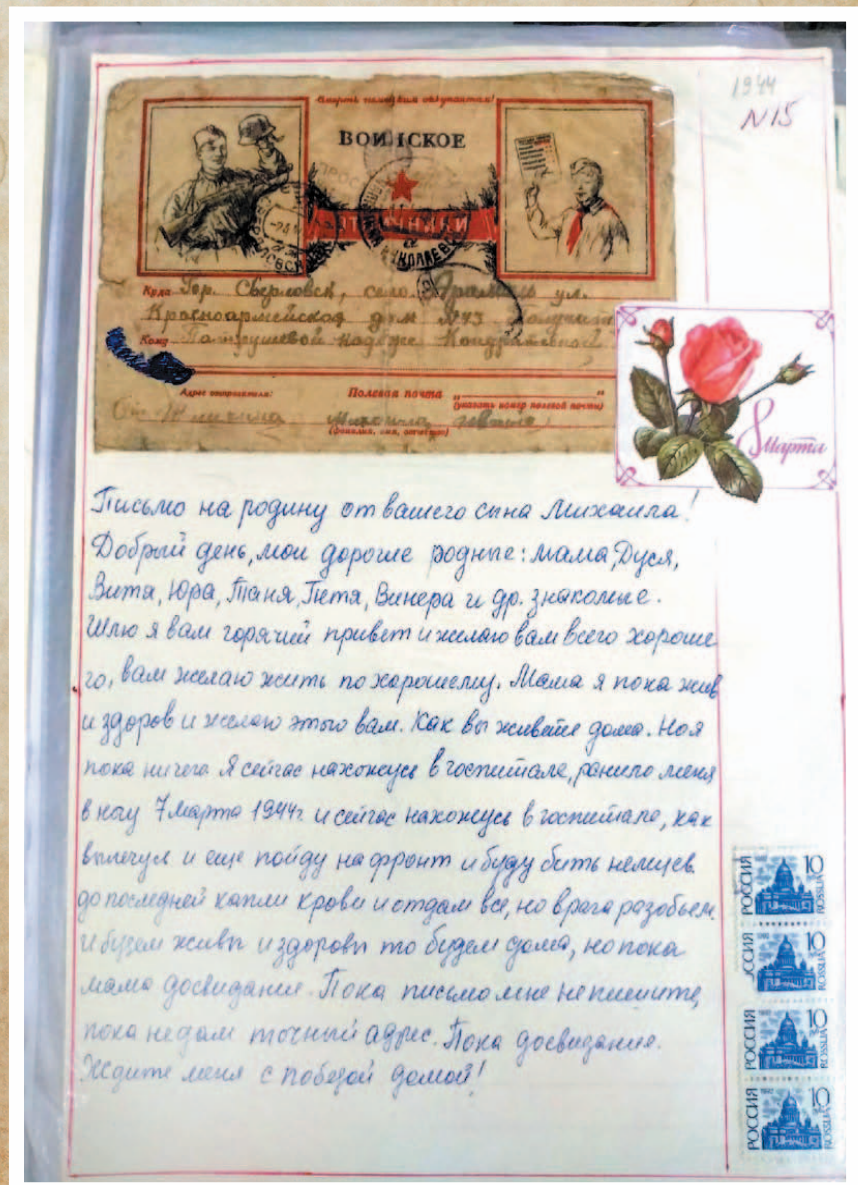 1944
N15
Смерть немецким оккупантам!
ВОИНСКОЕ
ОТЛИЧНИКИ
Куда Гор. Свердловск, село. Арамиль ул.
Красноармейская дом №73 получить
Кому Патрушевой Надежде Кондратьевной
Адрес отправителя: Полевая почта „ "
(указать номер полевой почты)
От Михаила
(фамилия, имя, отчество)
8 Марта
Письмо на родину от вашего сына Михаила!
Добрый день, мои дорогие родные: мама, Дуся,
Витя, Юра, Таня, Петя, Винера и др. знакомые.
Шлю я вам горячий привет и желаю вам всего хороше
го, вам желаю жить по харошему. Мама я пока жив
и здоров и желаю этого вам. Как вы живете дома. Но я
пока ничего. Я сейчас нахожусь в госпитале, ранило меня
в ногу 7 марта 1944г. и сейчас нахожусь в госпитале, как
вылечусь и еще пойду на фронт и буду бить немцев
до последней капли крови и отдам все, но врага разобьем
и будем живы и здоровы то будем дома, но пока
мама досвидания. Пока письмо мне не пишите,
пока не дам точный адрес. Пока досвидания.
Ждите меня с победой домой!
РОССИЯ 10 ROSSIJA
ССИЯ 10 ROSSIJA
РОССИЯ 10 ROSSIJA
РОССИЯ 10 ROSSIJA